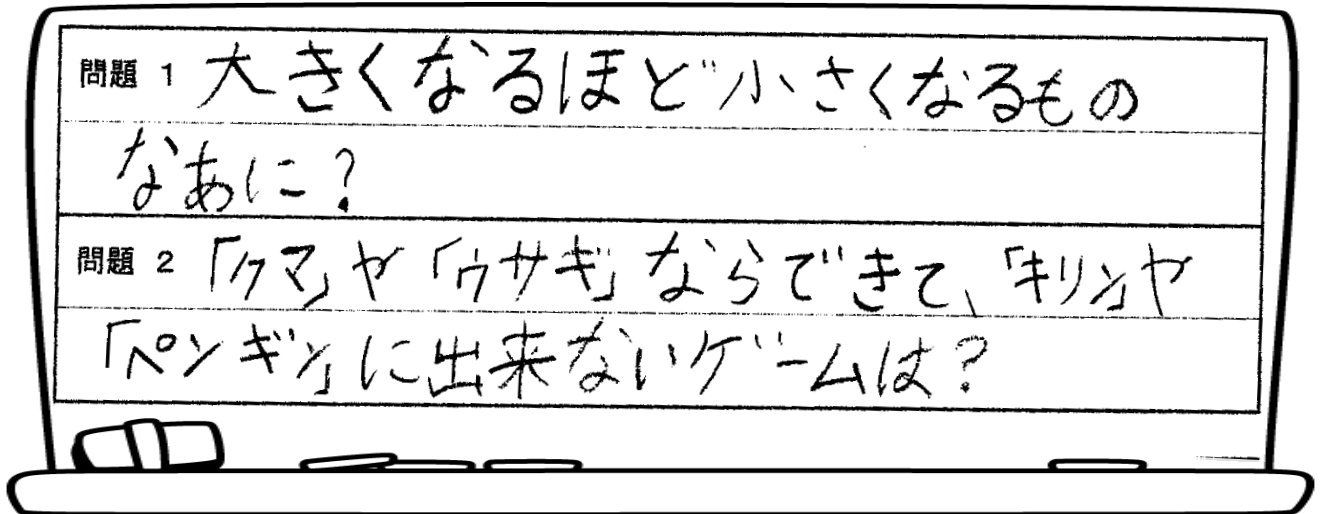 問題 1 大きくなるほど小さくなるもの
なあに?
問題 2 「クマ」や「ウサギ」ならできて、「キリン」や
「ペンギン」に出来ないゲームは?